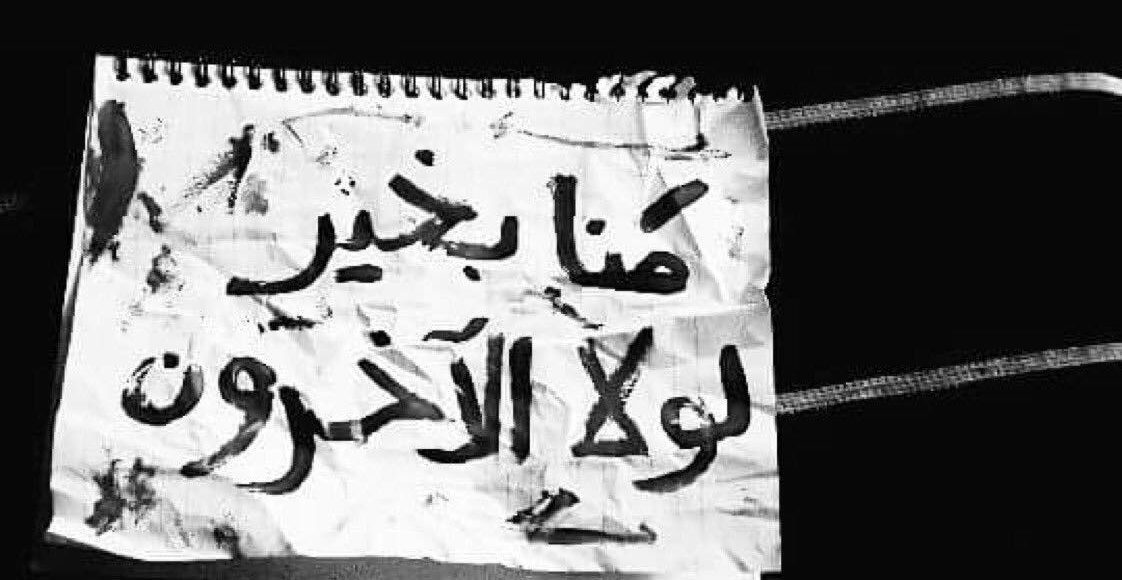 كنا بخير
لولا الآخرون